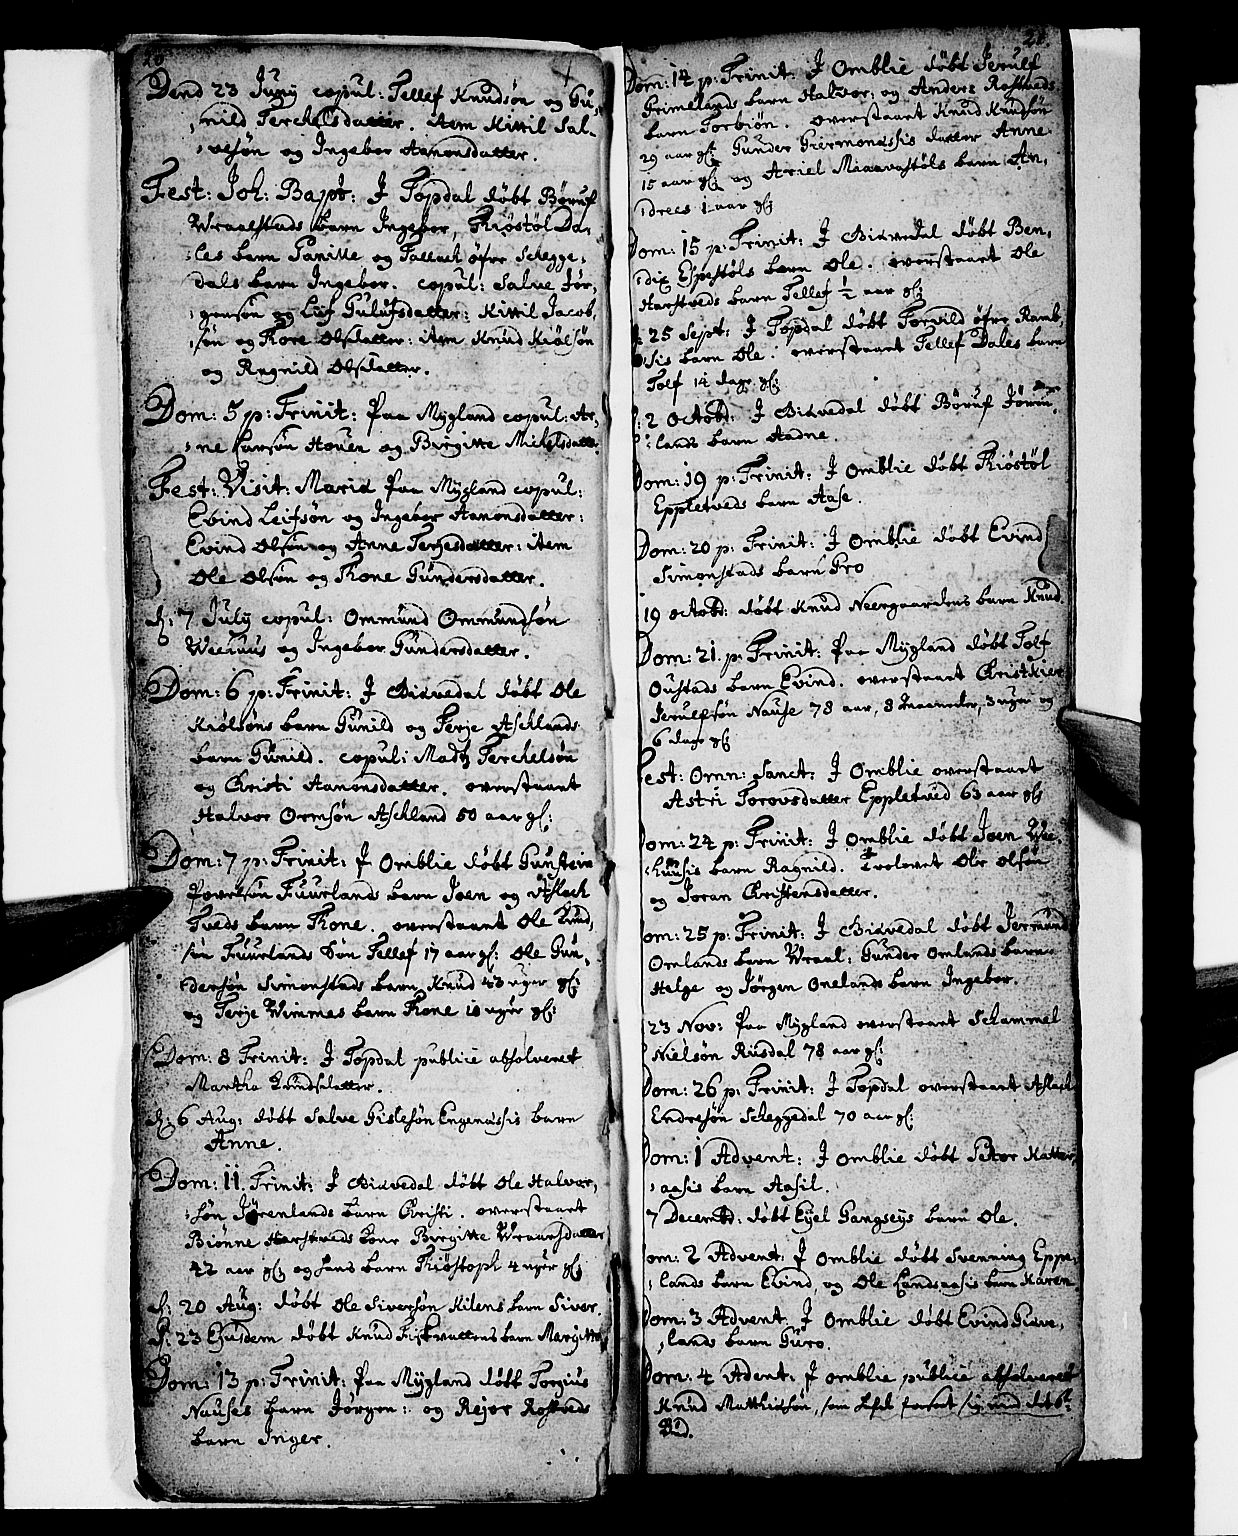 20
Dend 23 Juny copul: Tellef Knudsøn og Gu,
nild Terchelsdatter. Item Kittil Sal-
vesøn og Ingebor Aanonsdatter.
Fest: Joh: Bapt: I Topdal døbt Børuf
Wraalstads barn Ingebor, Kiøstøl Da-
les barn Tanitte og Tallach øfre Schegge-
dals barn Ingebor. copul: Salve Jør,
gensøn og Lief Gulufsdatter: Kittil Jacob,
søn og Tore Olsdatter: item Knud Kiølsøn
og Ragnild Olsdatter.
Dom: 5 p: Trinit: paa Mygland copul: Ar-
ne Larsøn Houen og Birgitte Michelsdatter.
Fest: Visit: Mariæ paa Mygland copul:
Evind Leifsøn og Ingebor Aanonsdatter:
Evind Olsøn og Anne Terjesdatter: item
Ole Olsøn og Tone Gundersdatter.
d: 7 July copul: Ommund Ommundsøn
og Ingebor Gundersdatter.
Dom: 6 p: Trinit: I Gidvedal døbt Ole
Kiølsøns barn Gunild og Terje Aschlands
barn Gunild. copul: Madtz Terchelsøn
og Christi Aanonsdatter. overstaaet
Halvor Ormsøn Aschland 50 aar gl:
Dom: 7 p: Trinit: I Omblie døbt Gunstein
Povelsøn Fuurlands barn Joen og Aslach
Tveds barn Tone. overstaaet Ole Knud,
søn Fuurlands Søn Tellef 17 aar gl: Ole Gun,
dersøn Simonstads barn Knud 43 uger gl:
og Terje Wimmes barn Tone 10 uger gl:
Dom: 8 Trinit: I Topdal publicè absolveret
Martha Evindsdatter.
d: 6 Aug: døbt Salve Gislesøn Engenæssis barn
Anne.
Dom: 11. Trinit: I Gidvedal døbt Ole Halvor,
søn Jørenlands barn Christi. overstaaet
Biønne Harstveds Kone Birgitte Wraalsdatter
42 aar gl: og hans barn Kiøstoph 4 uger gl:
d: 20 Aug: døbt Ole Siversøn Kilens barn Siver.
d: 23 Ejusdem døbt Knud Fiskvattens barn Margitte
Dom: 13 p: Trinit: paa Mygland døbt Torgius
Nauses barn Jørgen: og Rejer Rosseveds
barn Inger.
21
Dom: 14 p: Trinit: I Omblie døbt Jerulf
Grimelands barn Halvor: og Anders
barn Torbiøn. overstaaet Knud Knudsøn
29 aar gl: Gunder datter Anne
15 aar gl: og Ariel barn An,
drees 1 aar gl:
Dom: 15 p: Trinit: I Gidvedal døbt Ben,
dix Espestøls barn Ole. overstaaet Ole
Harstveds barn Tellef ½ aar gl:
d: 25 Sept: I Topdal døbt Torvild øfre Ramb,
sis barn Ole. overstaaet Tellef Dales barn
Tolf 14 dage gl:
d: 2 Octobr: I Gidvedal døbt Børuf Jøren,
lands barn Aadne.
Dom: 19 p: Trinit: I Omblie døbt Kiøstøl
Eppletveds barn Aase.
Dom: 20 p: Trinit: I Omblie døbt Evind
Simonstads barn Gro
19 octobr: døbt Knud Neergaardens barn Knud.
Dom: 21. p: Trinit: paa Mygland døbt Tolf
Oustads barn Evind. overstaaet
Jerulfsøn Nause 78 aar, 8 maaneder, 3 uger og
6 dage gl:
Fest: Omn: Sanct: I Omblie overstaaet
Astri Torovsdatter Eppletved 63 aar gl:
Dom: 24 p: Trinit: I Omblie døbt Joen
barn Ragnild. Trolovet Ole Olsøn
og Joran Christensdatter.
Dom: 25 p: Trinit: I Gidvedal døbt Jermund
Omlands barn Wraal: Gunder Omlands barn
Helge og Jørgen Omelands barn Ingebor.
23 Nov: paa Mygland overstaaet Schammel
Nielsøn Riisdal 78 aar gl:
Dom: 26 p: Trinit: I Topdal overstaaet Aslach
Endresøn Scheggedal 70 aar gl:
Dom: 1 Advent: I Omblie døbt Peter Katter,
aasis barn Aasil.
7 Decembr: døbt Eyel Gangseys barn Ole.
Dom: 2 Advent: I Omblie døbt Svenning Eppe-
lands barn Evind, og Ole Landsaasis barn Karen
Dom: 3 Advent: I Omblie døbt Evind Giøve,
lands barn Guro.
Dom: 4 Advent: I omblie publicè absolveret
Knud Matthissøn, som hafde forseet sig imod det 6te
Bud.